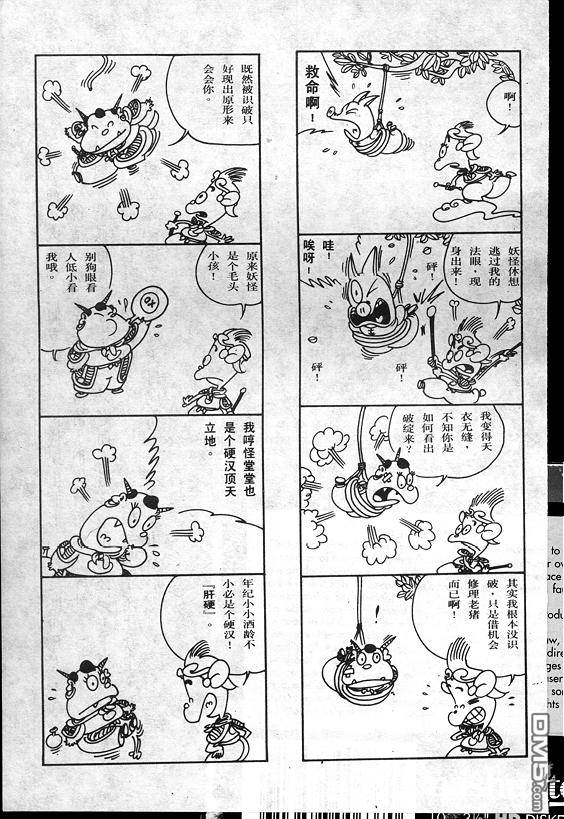 啊！
救命啊！
妖怪休想
逃过我的
法眼，现
身出来！
砰！
哇！
唉呀！
砰！
砰！
我变得天
衣无缝，
不知你是
如何看出
破绽来？
其实我根本没识
破，只是借机会
修理老猪
而已啊！
既然被识破只
好现出原形来
会会你。
原来妖怪
是个毛头
小孩！
别狗眼看
人低小看
我哦。
我哼怪堂堂也
是个硬汉顶天
立地。
年纪小小酒龄不
小必是个硬汉！
『肝硬』。
to
ace
odu
dire
ges
user
DM5.com
HD DISKE